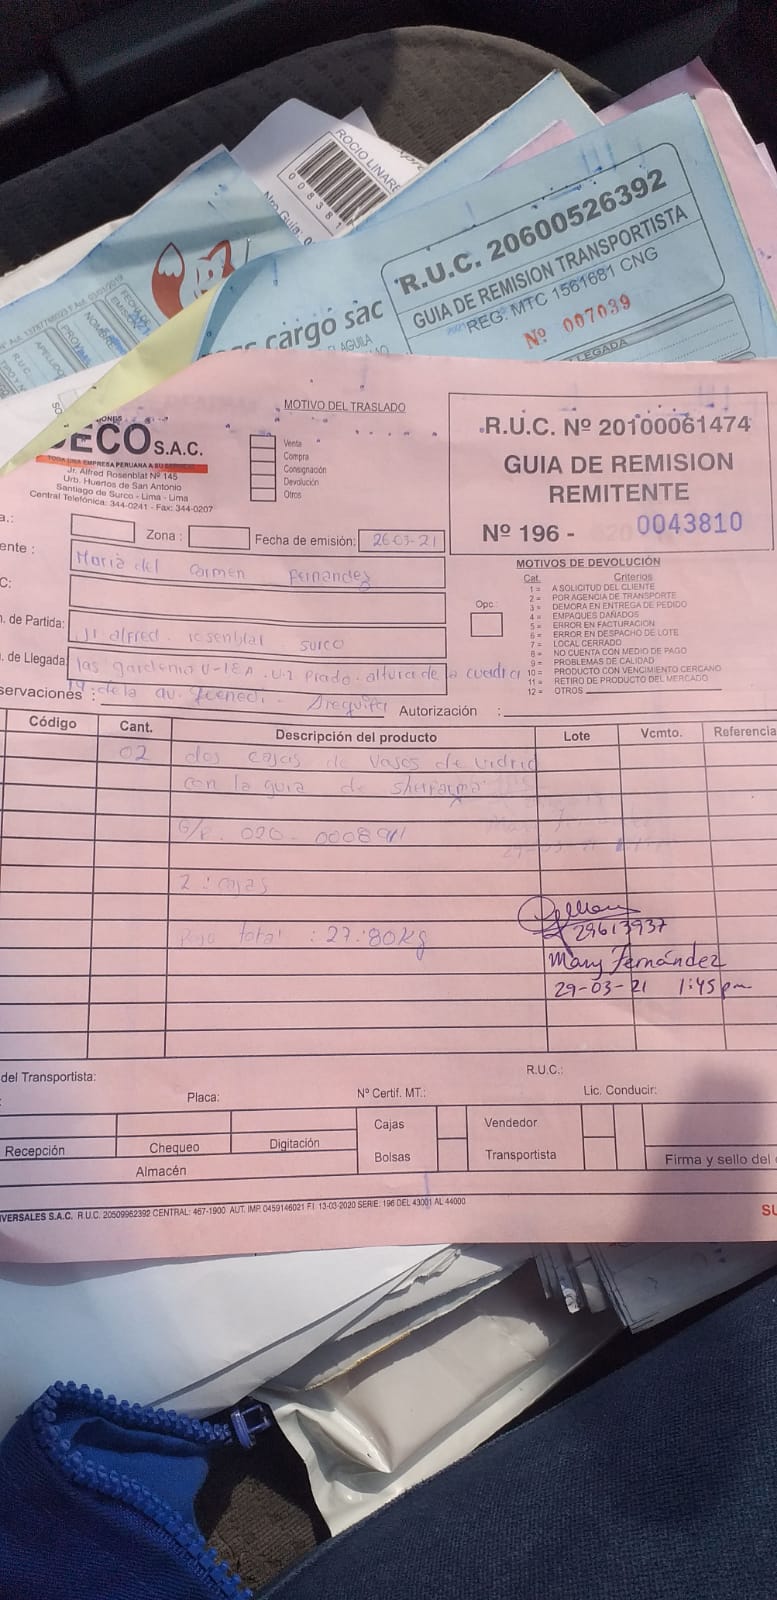 ROCIO LINARE
00838
Nro Guía: 0
R.U.C. 20600526392
GUIA DE REMISION TRANSPORTISTA
REG. MTC 1561681 CNG
Nº 007039
cargo sac
AGUILA
LLEGADA
ECO S.A.C.
TODA UNA EMPRESA PERUANA A SU
Jr. Alfred Rosenblat Nº 145
Urb. Huertos de San Antonio
Santiago de Surco - Lima - Lima
Central Telefónica: 344-0241 - Fax: 344-0207
MOTIVO DEL TRASLADO
Venta
Compra
Consignación
Devolución
Otros
R.U.C. Nº 20100061474
GUIA DE REMISION
REMITENTE
Nº 196 - 0043810
a.:
Zona :
Fecha de emisión: 26-03-21
ente : Maria del Carmen Fernandez
C:
. de Partida: Jr alfred. rosenblat. surco
. de Llegada: las gardenia U-18A. U-2 Prado. altura de la cuadra
servaciones : 14 de la av. - Arequipa
Autorización :
MOTIVOS DE DEVOLUCIÓN
Cat. Criterios
Opc:
1 = A SOLICITUD DEL CLIENTE
2 = POR AGENCIA DE TRANSPORTE
3 = DEMORA EN ENTREGA DE PEDIDO
4 = EMPAQUES DAÑADOS
5 = ERROR EN FACTURACION
6 = ERROR EN DESPACHO DE LOTE
7 = LOCAL CERRADO
8 = NO CUENTA CON MEDIO DE PAGO
9 = PROBLEMAS DE CALIDAD
10 = PRODUCTO CON VENCIMIENTO CERCANO
11 = RETIRO DE PRODUCTO DEL MERCADO
12 = OTROS
Código Cant. Descripción del producto Lote Vcmto. Referencia
02 dos cajas de vasos de vidrio
con la guia de
G/R. 020-
2: cajas
Peso total : 27.80kg
29613937
Mary Fernández
29-03-21 1:45 pm
del Transportista:
R.U.C.:
Placa:
Nº Certif. MT.:
Lic. Conducir:
Recepción
Chequeo
Digitación
Almacén
Cajas
Bolsas
Vendedor
Transportista
Firma y sello del
VERSALES S.A.C. R.U.C. 20509962392 CENTRAL: 467-1900 AUT. IMP. 0459146021 F.I. 13-03-2020 SERIE: 196 DEL 43001 AL 44000
SU